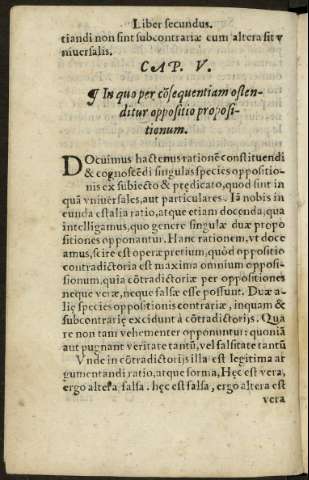 Liber secundus.
tiandi non sint subcontrariæ cum altera sit v
niuersalis.
CAP. V.
¶ In quo per cõsequentiam osten-
ditur oppositio proposi-
tionum.
DOcuimus hactenus rationẽ constituendi
& cognoscẽdi singulas species oppositio-
nis ex subiecto & prędicato, quod sint in
quã vniuersales, aut particulares. Iã nobis in
eunda est alia ratio, atque etiam docenda, qua
intelligamus, quo genere singulæ duæ propo
sitiones opponantur. Hanc rationem, vt doce
amus, scire est operæpretium, quòd oppositio
contradictoria est maxima omnium opposi-
sionum, quia cõtradictoriæ per oppositiones
neque veræ, neque falsæ esse possunt. Duæ a-
lię species oppositionis contrariæ, inquam &
subcontrarię excidunt à cõtradictorijs. Qua
re non tam vehementer opponuntur: quoniã
aut pugnant veritate tantũ, vel falsitate tantũ
Vnde in cõtradictorijs illa est legitima ar
gumentandi ratio, atque forma, Hęc est vera,
ergo altera falsa. hęc est falsa, ergo altera est
vera